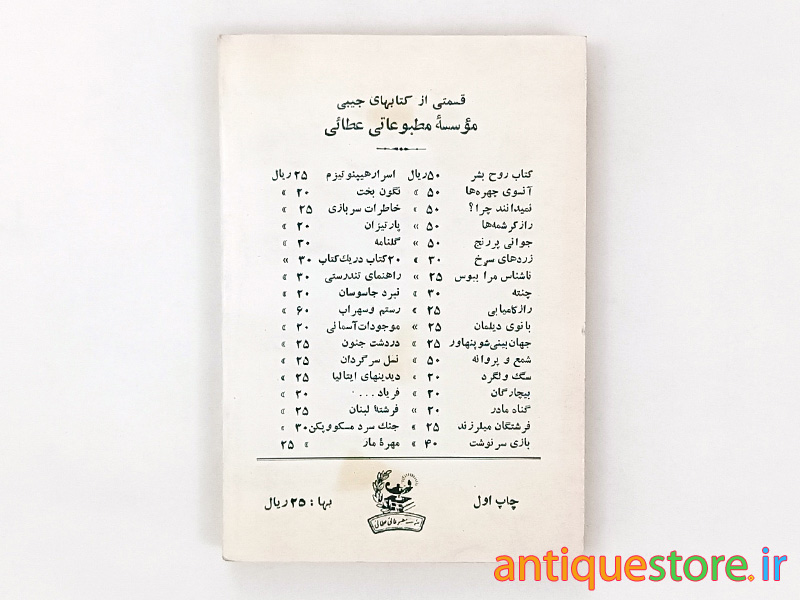 قسمتی از کتابهای جیبی
مؤسسهٔ مطبوعاتی عطائی
کتاب روح بشر ۵۰ ریال اسرار هیپنوتیزم ۲۵ ریال
آنسوی چهره‌ها ۵۰ » نگون بخت ۲۰ »
نمیدانند چرا؟ ۵۰ » خاطرات سربازی ۲۵ »
راز کرشمه‌ها ۵۰ » پارتیزان ۲۰ »
جوانی پررنج ۵۰ » گلنامه ۳۰ »
زردهای سرخ ۳۰ » ۲۰ کتاب در یک کتاب ۳۰ »
ناشناس مرا ببوس ۲۵ » راهنمای تندرستی ۳۰ »
چنته ۳۰ » نبرد جاسوسان ۲۰ »
راز کامیابی ۲۵ » رستم و سهراب ۶۰ »
بانوی دیلمان ۲۵ » موجودات آسمانی ۲۰ »
جهان‌بینی شوپنهاور ۲۵ » در دشت جنون ۲۵ »
شمع و پروانه ۵۰ » نسل سرگردان ۲۵ »
سگ ولگرد ۲۰ » دیدنیهای ایتالیا ۲۵ »
بیچارگان ۲۰ » فریاد . . . ۲۰ »
گناه مادر ۲۰ » فرشتهٔ لبنان ۲۵ »
فرشتگان میلرزند ۲۵ » جنگ سرد مسکو و پکن ۳۰ »
بازی سرنوشت ۴۰ » مهرهٔ مار » ۲۵
چاپ اول
مؤسسه مطبوعاتی عطائی
بها : ۲۵ ریال
antiquestore.ir